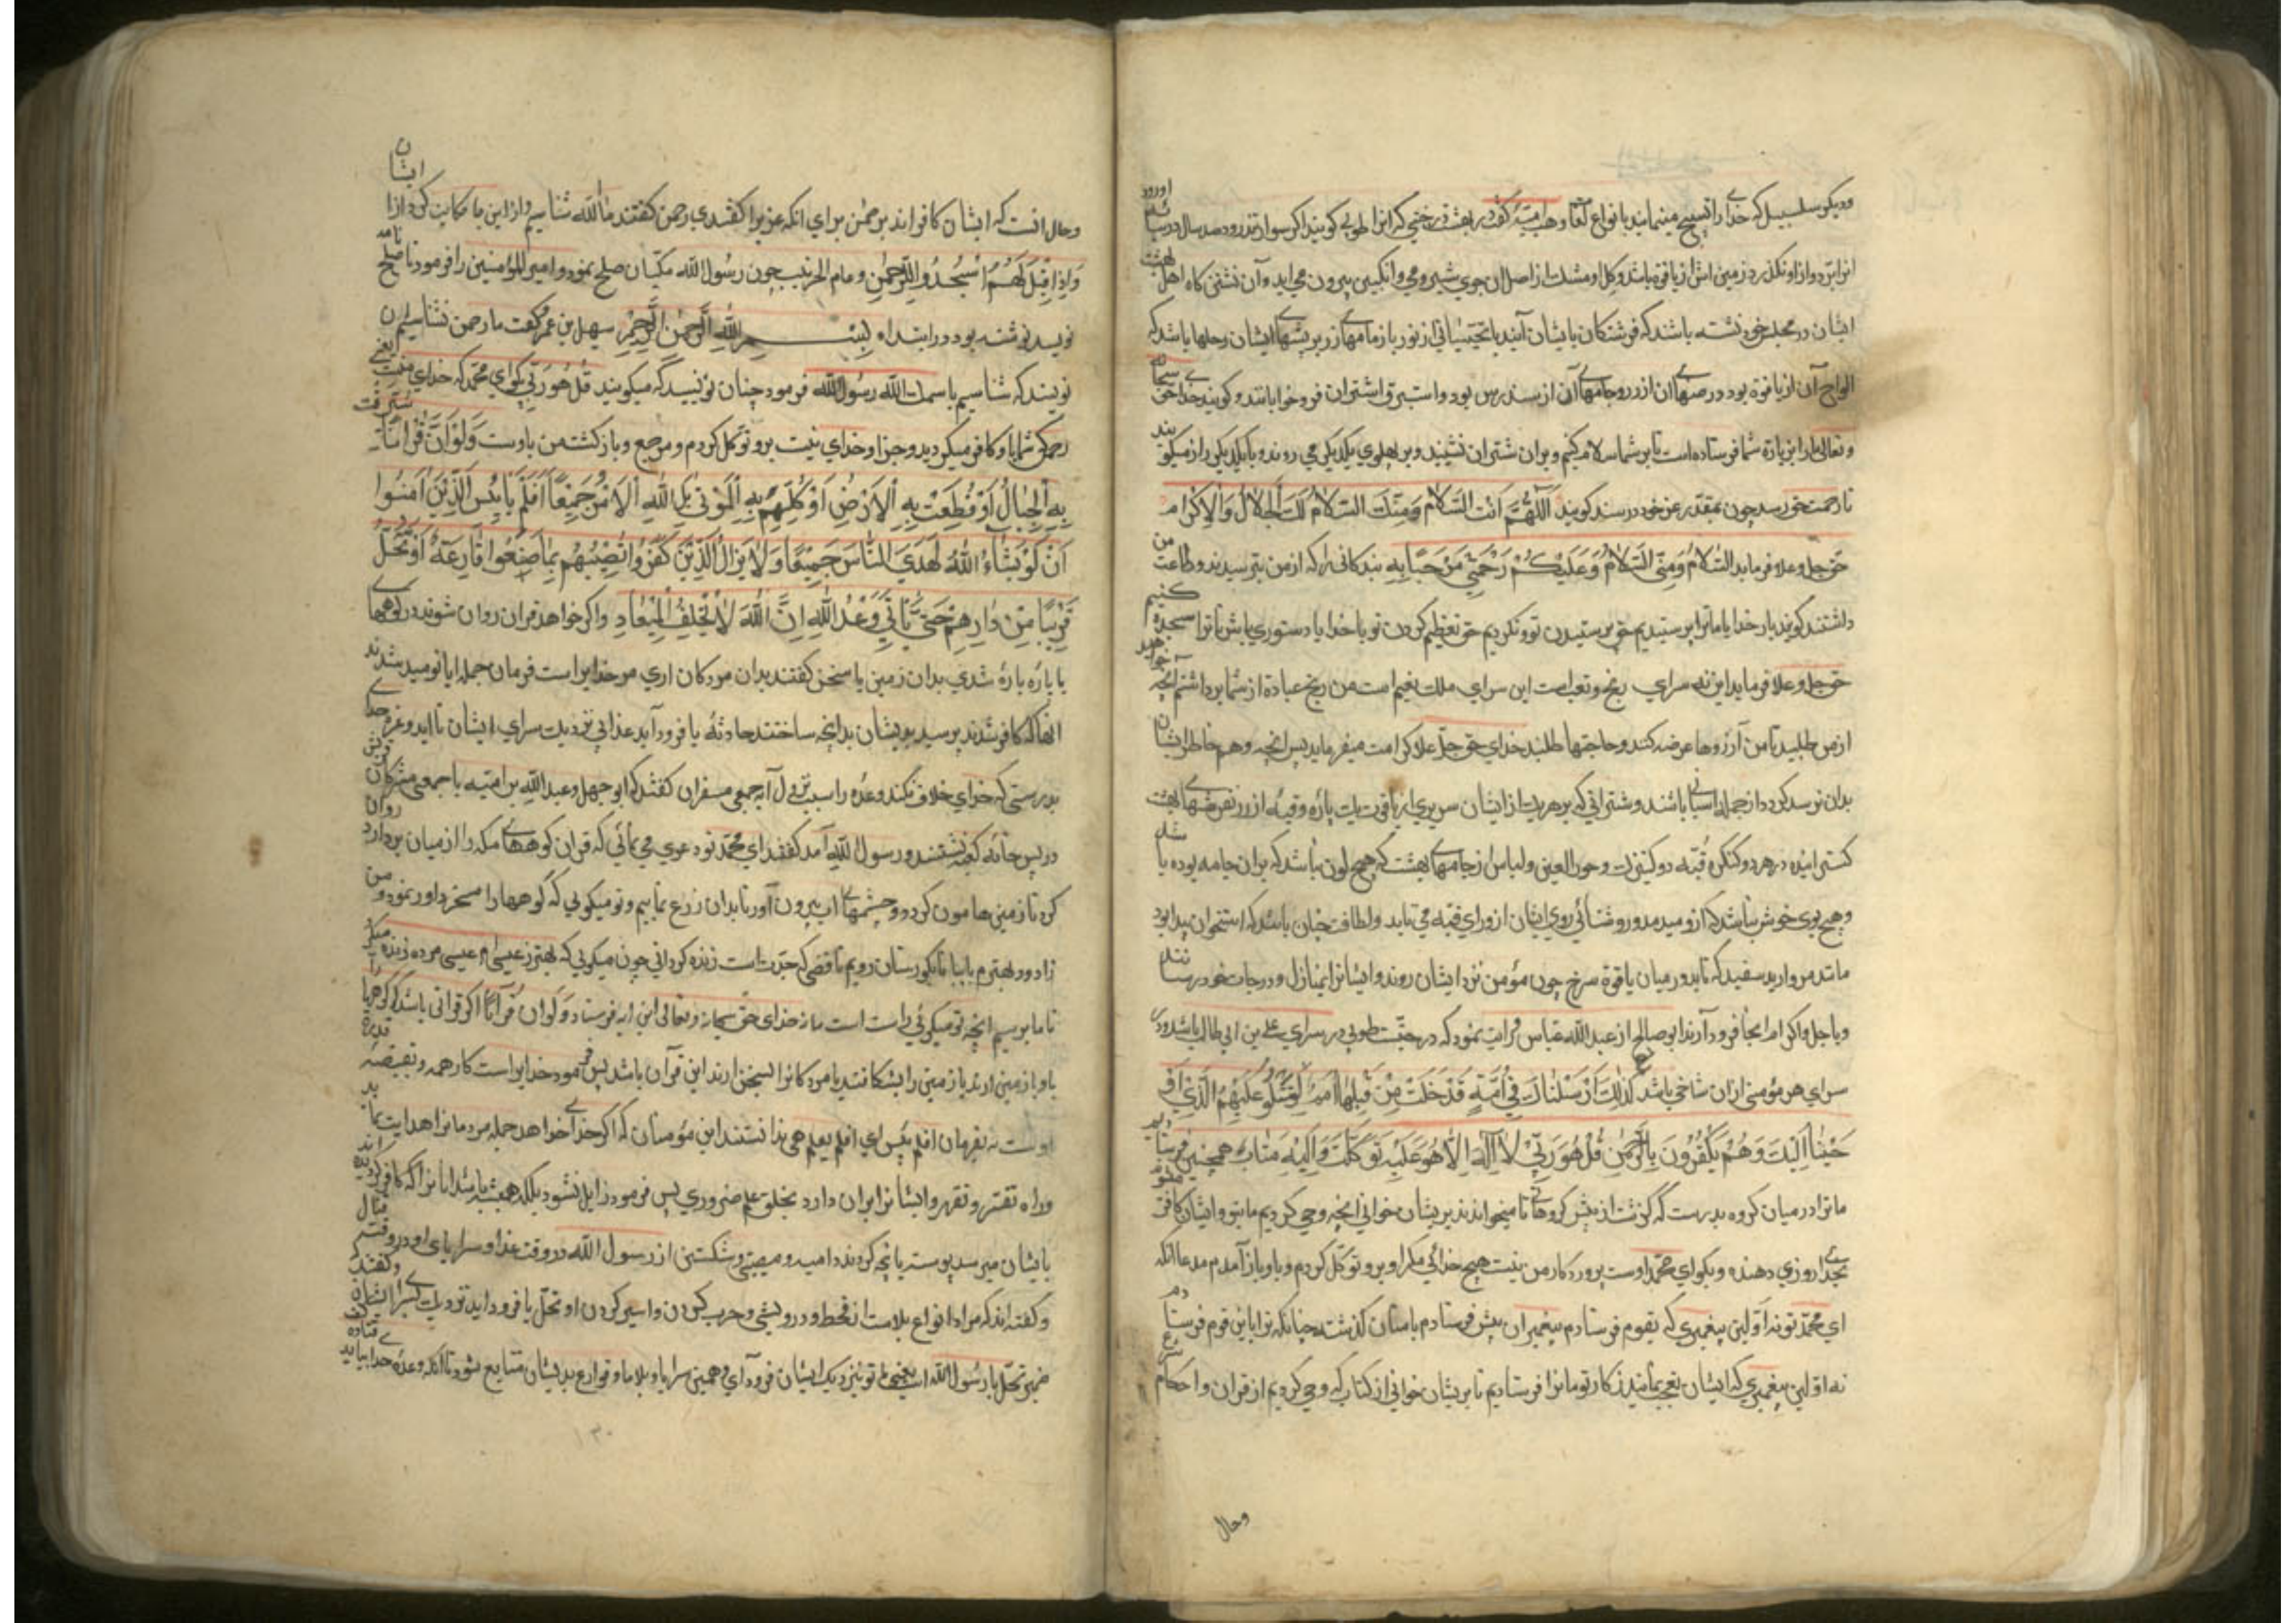 ودیکر سلسبیل که خدایرا تسبیح مینماید بانواع لغات وهب منبه کفت در بهشت درختی که انرا طوبی کویند اکر سواری تندرو صد سال در سایه
انرا برد و از او نکذرد زمین اش از یاقوت باشد و کل او مشک از اصل ان جوی شیر و می و انکبین بیرون می اید و آن نشتن کاه اهل بهشت
ایشان در مجلس خود نشسته باشند که فرشتکان بایشان آیند با از نور بازمامهای زر بر بشتهای ایشان رحلها باشد که
الواح آن از یاقوت بود و ان از زر و جامهای آن از سندس بود و استبرق اشتران فرو خوابانند و کویند خدای حق سبحانه
و تعالی مارا بزیارة شما فرستاده است تا بر شما سلام کنیم و بران شتران نشینند و بر پهلوی یکدیکر می روند و با یکدیکر راز میکویند
تا رحمت حق رسد چون بمقد عز خود درسند کویند اَللّهُمَّ اَنْتَ السَّلامُ وَمِنْكَ السَّلامُ لَكَ الْجَلالُ وَالاِكْرام
حق جل وعلا فرماید السَّلامُ وَمِنِّي السَّلامُ وَعَلَيْكُمْ رَحْمَتِي مَرْحَبًا بِه بندکانی را که از من بترسیدند و طاعت من
داشتند کویند بار خدایا ما ترا پرستیدیم حق پرستیدن تو و نکردیم حق تعظیم کردن تو بار خدایا دستوری باش تا ترا سجده کنیم
حق جل وعلا فرماید این نه سرای رنج و تعب است این سرای ملک نعیم است من رنج عبادة از شما برداشتم آنچه خواهید
از من طلبید تا من آرزوها عرضه کنند و حاجتها طلبند خدای حق جل علا کرامت میفرماید بس انچه وهم خاطر ایشان
بدان نرسد کرداز جمله اسبانی باشند و شترانی که بر هر یک از ایشان سریری از یاقوت یک پاره وقبه از زر بفرشهای بهشت
کسترانیده در هر دو کنکره قبه دو کنیزک و حور العین ولباس از جامهای بهشت که هیچ لون نباشد که بران جامه بوده باشد
وهیچ بوی خوش نباشد که ازو میدمد و روشنائی روی ایشان از ورای قبه می تابد و لطافت چنان باشد که استخوان پیدا بود
مانند مروارید سفید که تابد در میان یاقوة سرخ چون مؤمن نزد ایشان روند و ایشانرا بمنازل و درجات خود رسانند
وباجل واکرام انجا فرود آرند ابو صالح از عبد الله عباس قرایت نمود که درخت طوبی در سرای علی بن ابی طالب باشد ودر
سرای هر مؤمنی ازان شاخی باشد كَذلِكَ اَرْسَلْناكَ فِي اُمَّةٍ قَدْ خَلَتْ مِنْ قَبْلِها اُمَمٌ لِتَتْلُوَ عَلَيْهِمُ الَّذِي اَوْ
حَيْنا اِلَيْكَ وَهُمْ يَكْفُرُونَ بِالرَّحْمنِ قُلْ هُوَ رَبِّي لا اِلهَ اِلاّ هُوَ عَلَيْهِ تَوَكَّلْتُ وَاِلَيْهِ مَتابِ همچنین فرستادیم
ما ترا در میان کروه بدرست که کذشت از پیش کروهها تا میخوانند بریشان خوانی انچه وحی کردیم ما بتو وایشان کافر میشوند
بخدای روزی دهنده وبکو ای محمد اوست پروردکار من نیست هیچ خدائی مکر او برو توکل کردم وباو باز آمدم مدعا انکه
ای محمد تو نه اولین پیغمبری که بقوم فرستادم پیغمبران پیش فرستادم بامتان کذشته چنانکه ترا باین قوم فرستادم
نه اولین پیغمبری که ایشان تعجب نمایند ز کار تو ما ترا فرستادیم تا بریشان خوانی از کتاب که وحی کردیم از قران واحکام شرع
وحال
وحال انست که ایشان کافر اند برحمن برای انکه عزیرا کفتندی رحمن کفتند ما الله شناسیم واز این ما حکایت کرد از ایشان
وَاِذا قِيلَ لَهُمُ اسْجُدُوا لِلرَّحْمنِ وعام الحدیبیه چون رسول الله مکیان صلح نمود وامیر المؤمنین را فرمود تا صلح نامه
نویسد نوشته بود در ابتداء بِسْمِ اللهِ الرَّحْمنِ الرَّحِيمِ سهیل بن عمرو کفت ما رحمن نشناسیم ان
نویسند که شناسیم باسمك اللهم رسول الله فرمود چنان نویسید که میکویند قُلْ هُوَ رَبِّي بکو ای محمد که خدای منست یعنی
رحمن که شما باو کافر میکردید وجز او خدای نیست برو توکل کردم ومرجع وبازکشت من باوست وَلَوْ اَنَّ قُرْاناً سُيِّرَتْ
بِهِ الْجِبالُ اَوْ قُطِّعَتْ بِهِ الْاَرْضُ اَوْ كُلِّمَ بِهِ الْمَوْتى بَلْ لِلّهِ الْاَمْرُ جَمِيعًا اَفَلَمْ يَايْئَسِ الَّذِينَ اَمَنُوا
اَنْ لَوْ يَشاءُ اللهُ لَهَدَى النّاسَ جَمِيعًا وَلا يَزالُ الَّذِينَ كَفَرُوا تُصِيبُهُمْ بِما صَنَعُوا قارِعَةٌ اَوْ تَحُلُّ
قَرِيبًا مِنْ دارِهِمْ حَتّى يَاْتِيَ وَعْدُ اللهِ اِنَّ اللهَ لا يُخْلِفُ الْمِيعادِ واکر خواهد قران روان شوند در کوهها
یا پاره پاره شدی بدان زمین یا سخن کفتند بدان مردکان اری مر خدایراست فرمان جمله ایا نومید شدند
انها که کافر شدند برسید بدیشان بدانچه ساختند حادثه یا فرود آید عذابی نزدیک سرای ایشان تا اید وعده خدای
بدرستی که خدای خلاف نکند وعده را سبب نزول آیه جمعی مفسران کفتند که ابو جهل وعبد الله بن امیه با جمعی مشرکان قریش
در پس خانه کعبه نشستند ورسول الله آمد کفتند ای محمد تو دعوی می نمائی که قران کوههای مکه را از میان بردارد روان
کرد تا زمین هامون کردد وچشمهای اب بیرون آور تا بدان زرع نماییم وتو میکوئی که کوهها را مسخر داود نمود ومن
زا داود بهترم یا بیا تا بکورستان رویم تا قصی که جدت است زنده کردانی چون میکوئی که بهتر ز عیسی ام عیسی مرده زنده میکرد
تا ما برسیم انچه تو میکوئی راست است یا نه خدای حق سبحانه وتعالی این ایه فرستاد وَلَوْ اَنَّ قُرْاناً اکر قرانی باشد که کوهها را
باو باز زمین ارند یا زمین را بشکافتد یا مردکانرا بسخن ارند این قرآن باشد پس فرمود خدایراست کار همه وبقبضه قدرة
اوست نه بفرمان افلم ییأس ای افلم یعلم می ندانستند این مؤمنان که اکر خدای خواهد جمله مردمانرا هدایت نماید
وایشانرا بران دارد بخلق علم ضروری پس فرمود زایل نشود بلکه همیشه باشد انانرا که کافر کردیده اند
بایشان میرسد پیوسته بانچه کردند داهیه ومصیبتی وشکستن از رسول الله در وقت غذا وسرایای او در وقت قتال
وکفته اند که مراد انواع بلاست از قحط ودرویشی وحرب کردن واسیر کردن او تحل یا فرود اید نزدیک سرای ایشان وکفتند
ضمیر تحل با رسول الله است یعنی یا تو بنزدیک ایشان فرود آی وهمین سرایا وبلاها وقوارع بدیشان متتابع شود تا انکه وعده خدا بیاید قتاده
۱۳۰